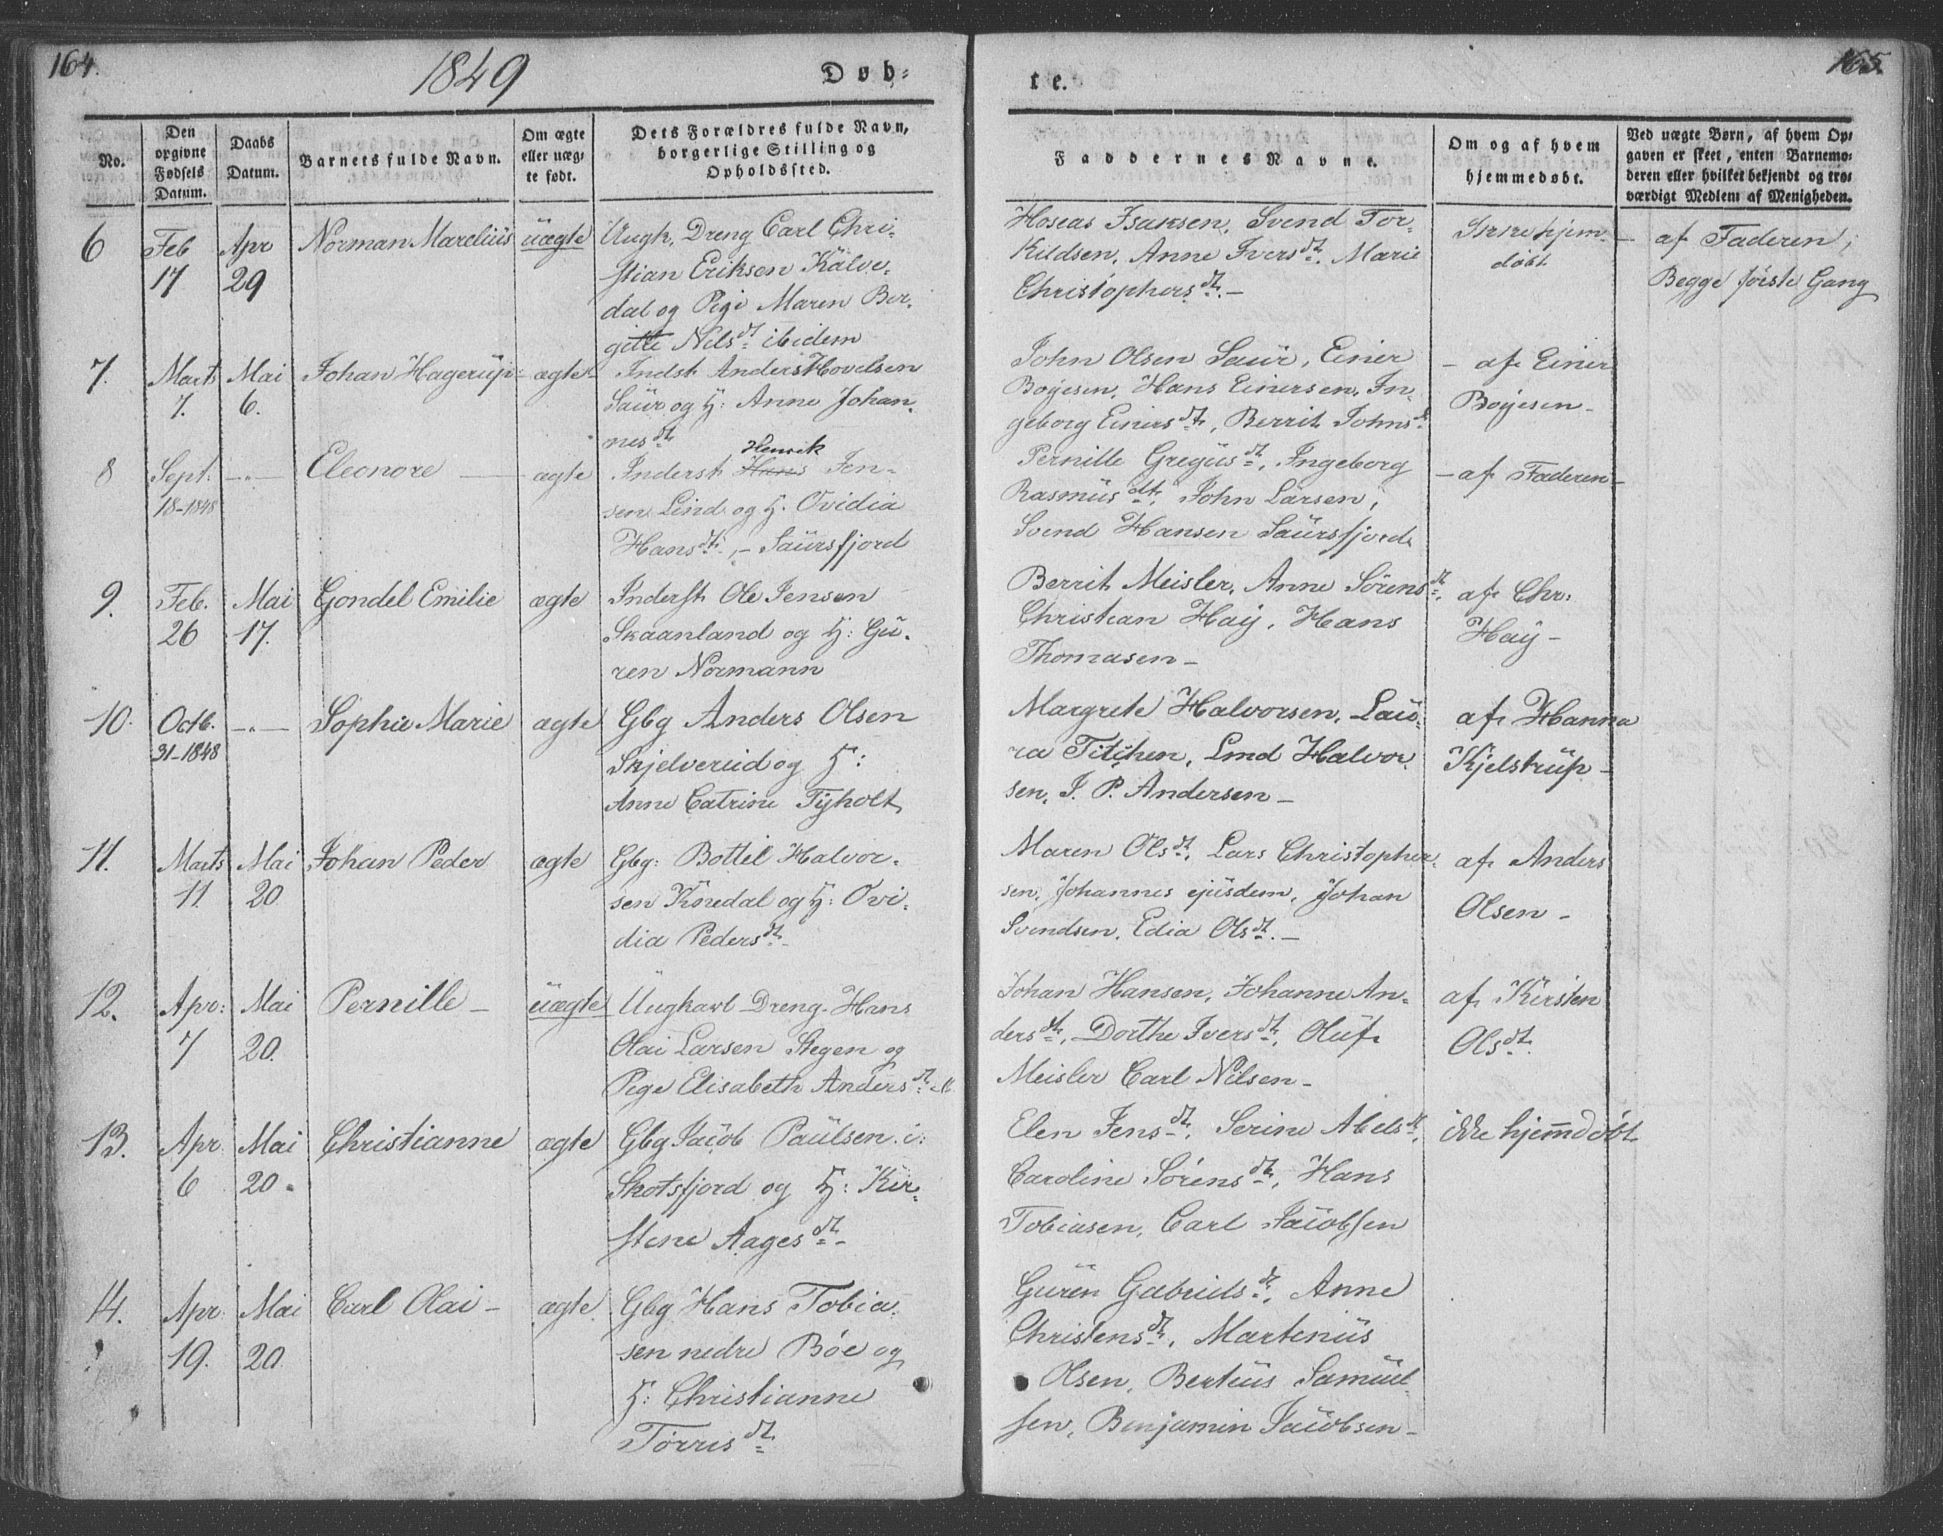 164.
1849
Døb-
te.
165.
No.
Den opgivne Fødsels Datum.
Daabs Datum.
Barnets fulde Navn.
Om ægte eller uæg-te født.
Dets Forældres fulde Navn, borgerlige Stilling og Opholdssted.
Faddernes Navne.
Om og af hvem hjemmedøbt.
Ved uægte Børn, af hvem Op-gaven er skeet, enten Barnemo-deren eller hvilket bekjendt og tro-værdigt Medlem af Menigheden.
6 Feb 17 Apr 29 Norman Marelius uægte
Ungk. Dreng Carl Chri-
stian Eriksen Kalve-
dal og Pige Maren Ber-
gitte Nilsdt ibidem
Hoseas Isaksen, Svend Tor-
kildsen, Anne Iversdt. Marie
Christophersdt. -
Ikke hjem-
døbt
af Faderen,
Begge første Gang
7. Marts 7. Mai 6. Johan Hagerup ægte
Indst Anders Hovelsen
Saur og H: Anne Johan-
nesdt
John Olsen Saur, Einer
Boyesen, Hans Einersen, In-
geborg Einersdt, Berrit Johnsd
- af Einer
Boyesen -
8 Sept. 18-1848 -"- Eleonore - ægte
Henrik
Inderst Hans Jen-
sen Lind og H. Ovidia
Hansdt. - Saursfjord
Pernille Gregusdt, Ingeborg
Rasmusdt, John Larsen,
Svend Hansen Saursfjord
- af Faderen -
9. Feb. 26 Mai 17. Gondel Emilie ægte
Inderst Ole Jensen
Skaanland og H: Gu-
ren Normann
Berrit Meisler, Anne Sørensdt.
Christian Hay, Hans
Thomasen -
af Chr:
Hay -
10. Octb. 31-1848 -"- Sophie Marie ægte
Gbg Anders Olsen
Skjelvereid og H:
Anne Catrine Tyholt
Margrete Halvorsen, Lau-
ra Titchen, Lind Halvor-
sen, J. P. Andersen -
af Hanna
Kjelstrup -
11. Marts 11 Mai 20 Johan Peder ægte
Gbg: Bottel Halvor-
sen Knedal og H: Ovi-
dia Pedersdt -
Maren Olsdt, Lars Christopher-
sen, Johannes ejusdem, Johan
Svendsen, Edia Olsdt. -
af Anders
Olsen -
12. Apr: 7 Mai 20. Pernille - uægte
Ungkarl Dreng Hans
Olai Larsen Stegen og
Pige Elisabeth Andersdt
Johan Hansen, Johanne An-
dersdt, Dorthe Iversdt, Oluf
Meisler Carl Nilsen -
af Kirsten
Olsdt.
13. Apr 6 Mai 20. Christianne ægte
Gbg Jacob Paulsen i:
Skotsfjord og H: Kir-
stene Aagesdt -
Elen Jensdt, Serine Abelsdt,
Caroline Sørensdt, Hans
Tobiasen, Carl Jacobsen
ikke hjemdøbt
14. Apr 19. Mai 20 Carl Olai - ægte
Gbg Hans Tobia-
sen nedre Bøe og
H: Christianne
Torrisdt
Guren Gabrielsdt, Anne
Christensdt, Martinus
Olsen, Berteus Samuel-
sen, Benjamin Jacobsen -